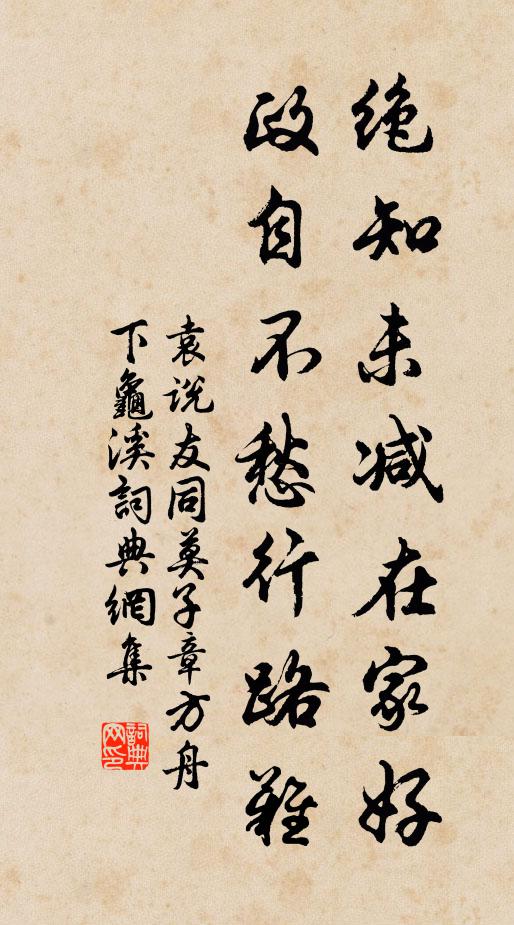 绝知未减在家好
政自不愁行路难
袁说友同莫子章方舟
下龜溪詞典網集
詞典
网印